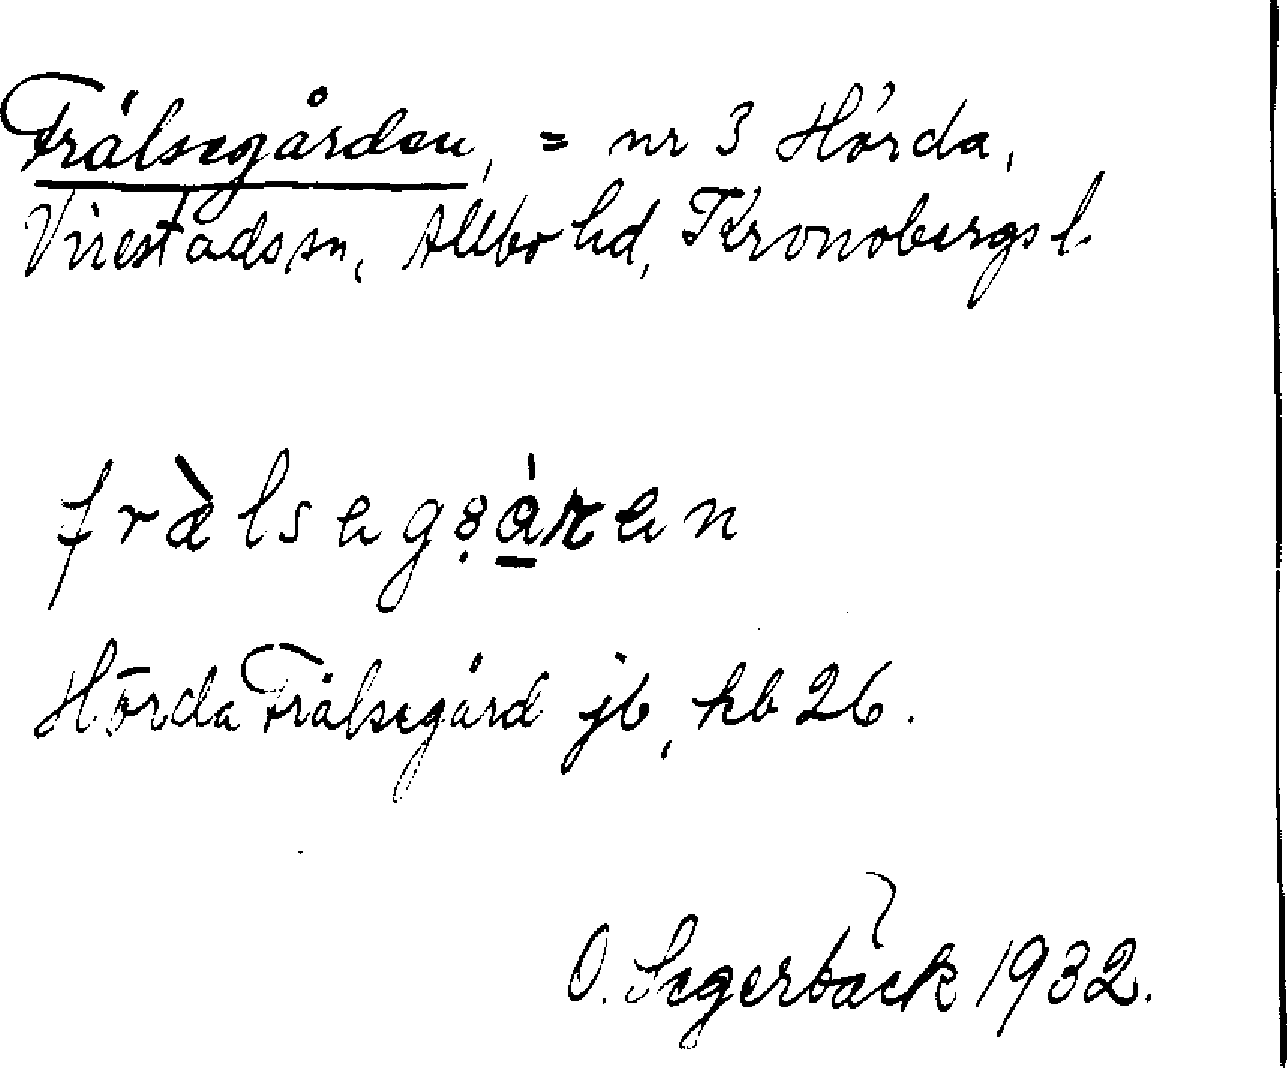 Frälsegården, = nr 3 Hörda,
Virestads sn, Allbo hd, Kronobergs l.
Hörda Frälsegård jb, kb 26.
O. Segerbäck 1932.